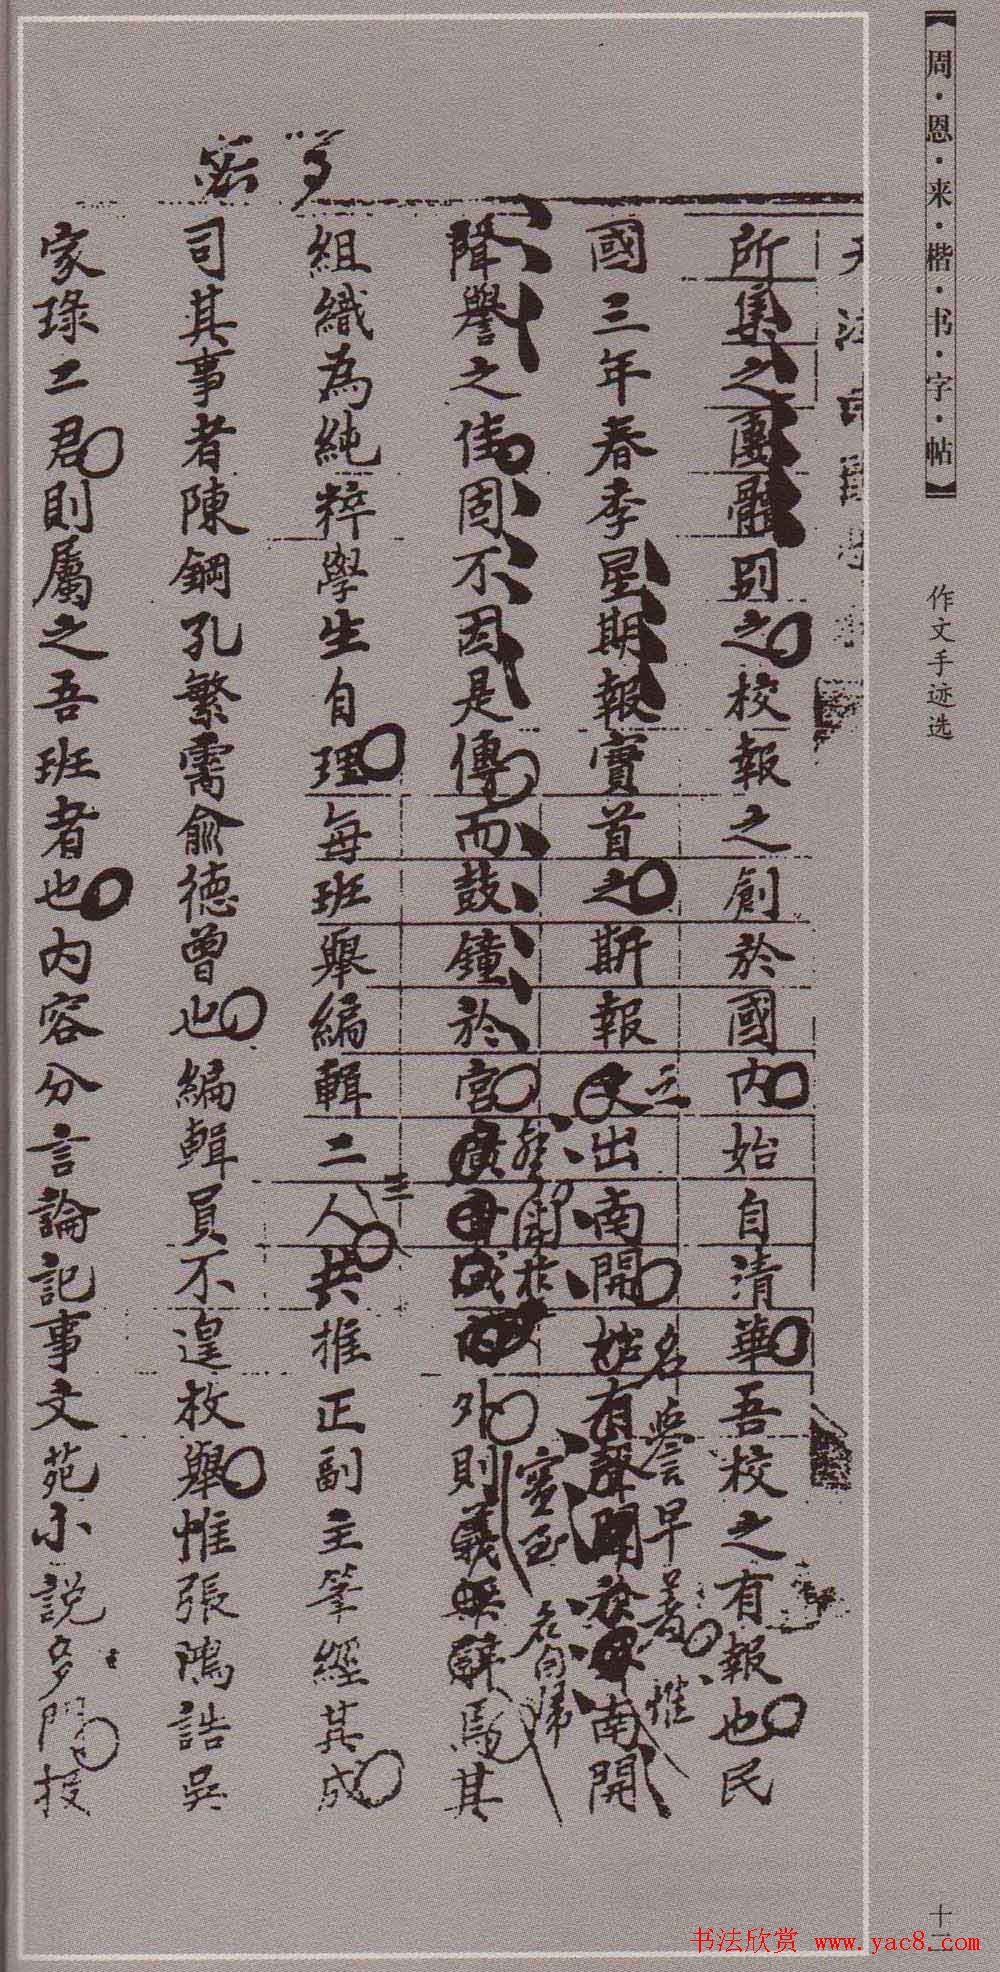 【周·恩·来·楷·书·字·帖】
作文手迹选
十二
所集之團體別之校報之創於國內始自清華吾校之有報也民
國三年春季星期報實首之斯報之出南開
名譽早著惟南開
聲譽之佳固不因是傳而鼓鐘於宮聲聞於外則實至名自歸焉其
組織為純粹學生自理每班舉編輯二人共推正副主筆經其成
三
司其事者陳鋼孔繁霱俞德曾也編輯員不遑枚舉惟張鴻誥吳
家琭二君則屬之吾班者也內容分言論記事文苑小說多門投
书法欣赏 www.yac8.com